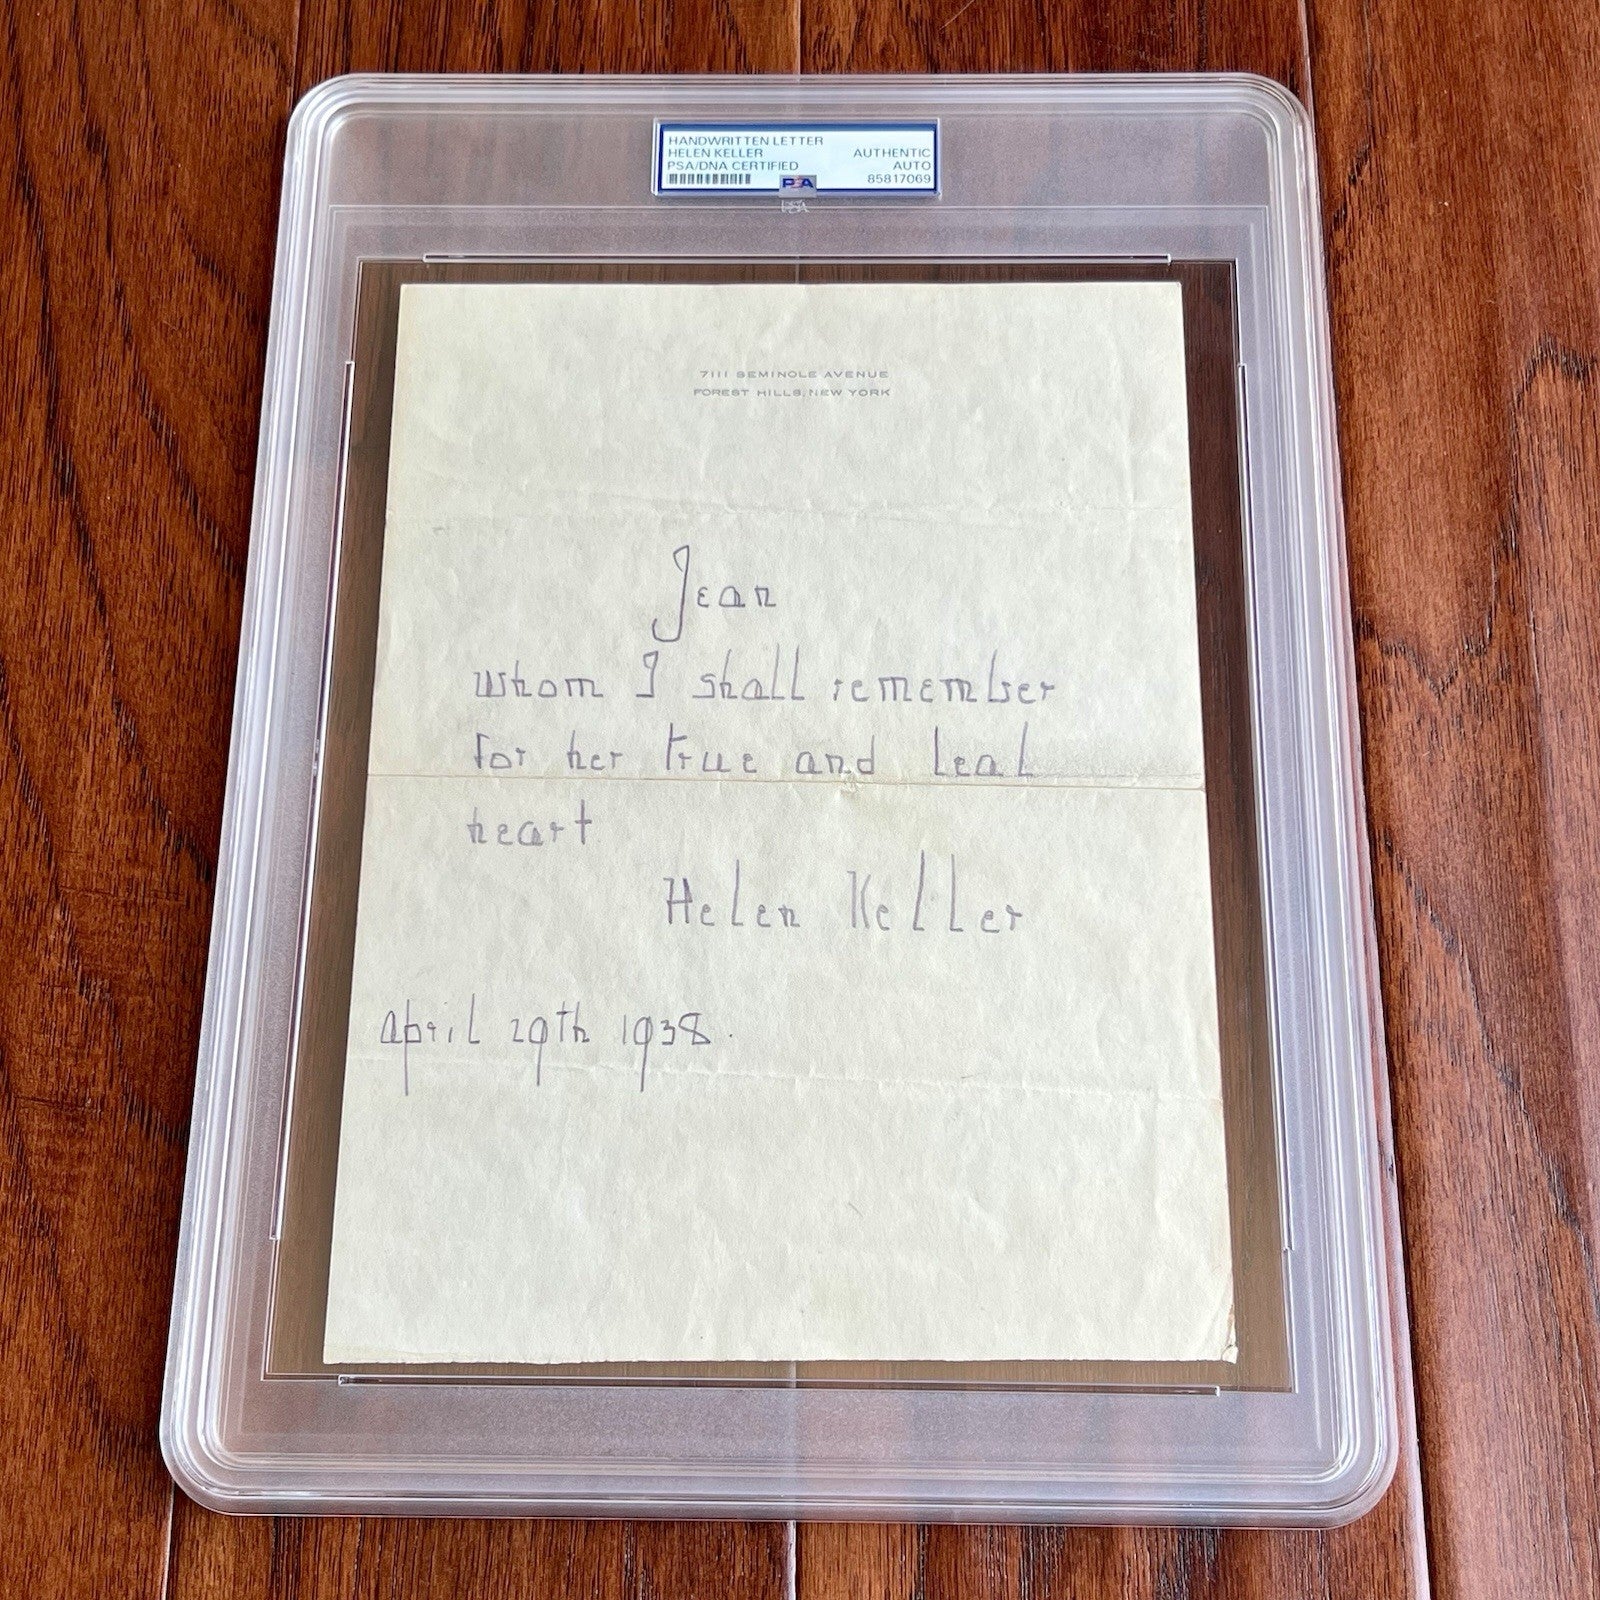 HANDWRITTEN LETTER
HELEN KELLER
PSA/DNA CERTIFIED
AUTHENTIC
AUTO
85817069
PSA
7111 SEMINOLE AVENUE
FOREST HILLS, NEW YORK
Jean
whom I shall remember
for her true and leal
heart
Helen Keller
april 29th 1938.